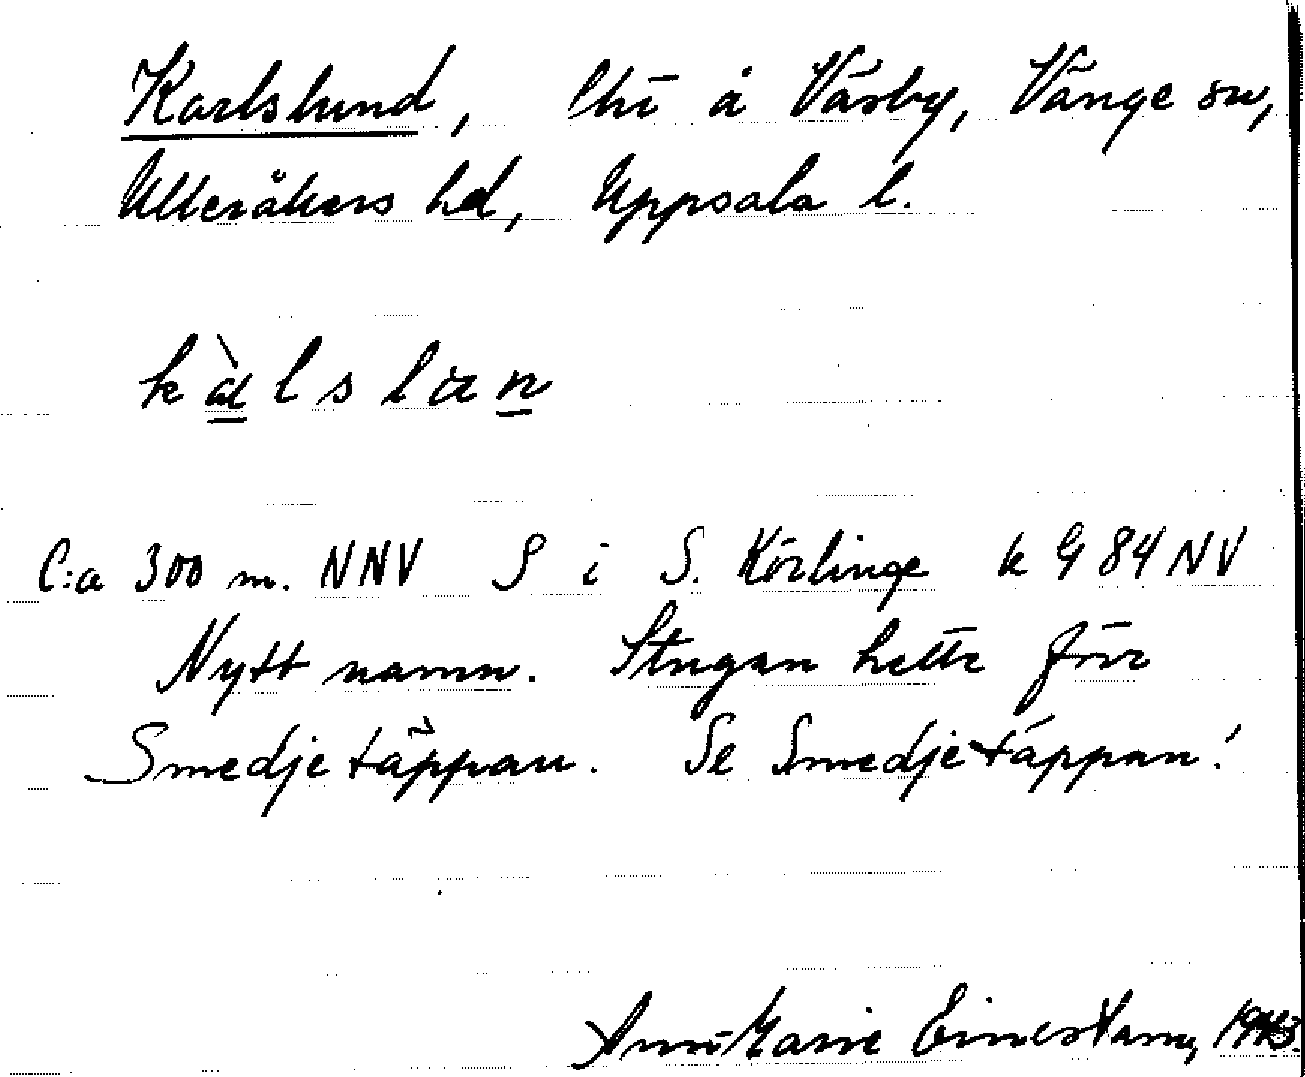 Karlslund, lht å Vårby, Vänge sn,
Ulleråkers hd, Uppsala l.
kàlslan
C:a 300 m. NNV S i S. Körlinge k G 84 NV
Nytt namn. Stugan hette förr
Smedjetäppan. Se Smedjetäppan!
Ann-Marie Einerstam, 1943.